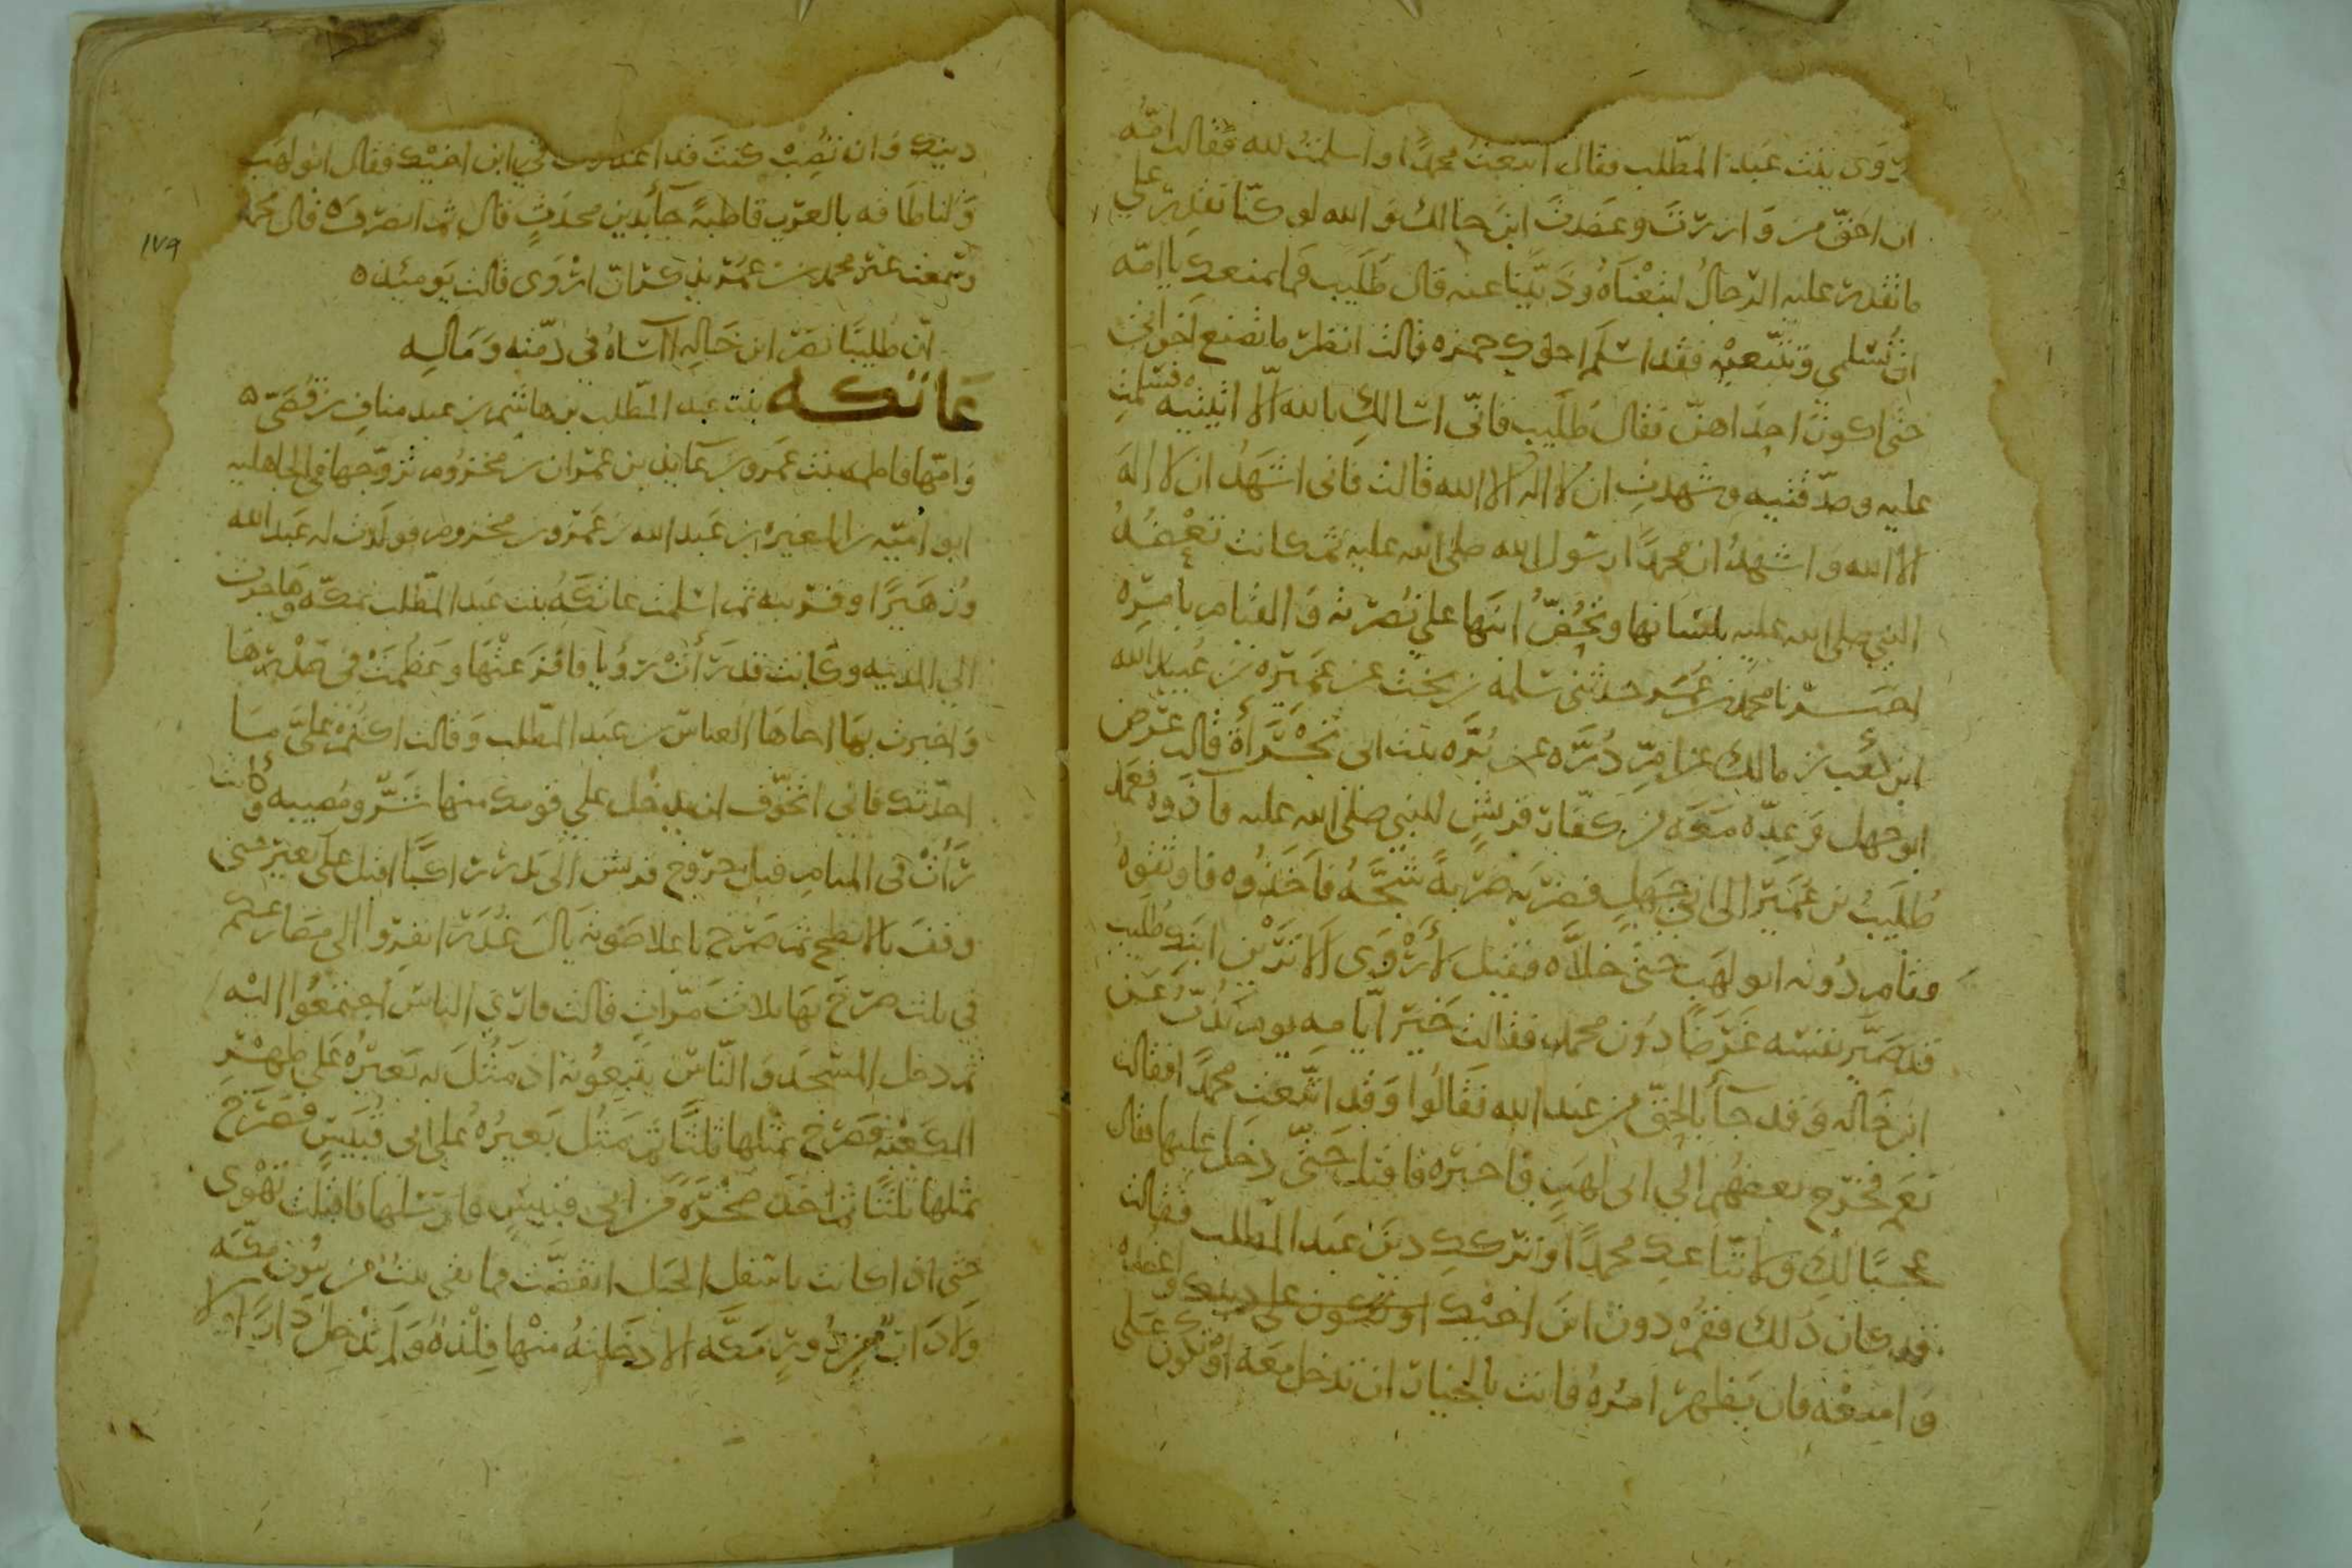 روى بنت عبد المطلب فقال اتبعت محمدا واسلمت لله فقالت امه
ان احق من وازرت وعضدت ابن خالك والله لو كنا نقدر على
ما تقدر عليه الرجال لتبعناه وذببنا عنه قال طليب فما يمنعك يا امه
ان تسلمي وتتبعيه فقد اسلم اخوك حمزه قالت انظر ما تصنع اخواتي
حتى اكون احداهن فقال طليب فاني اسالك بالله الا اتيتيه فسلمت
عليه وصدقتيه وشهدت ان لا اله الا الله قالت فاني اشهد ان لا اله
الا الله واشهد ان محمدا رسول الله صلى الله عليه ثم كانت تعضد
النبي صلى الله عليه بلسانها وتحض ابنها على نصرته والقيام بامره
اخبرنا محمد بن عمر حدثني سلمة بن بخت عن عميره بن عبيد الله
ابن كعب بن مالك عن ام دره عن بره بنت ابي تجراة قالت عرض
ابو جهل وعده معه من كفار قريش للنبي صلى الله عليه فآذوه فعمد
طليب بن عمير الى ابي جهل فضربه ضربة شجه فاخذوه فاوثقوه
فقام دونه ابو لهب حتى خلاه فقيل لأروى الا ترين ابنك طليب
قد صير نفسه غرضا دون محمد فقالت خير ايامه يوم يذب عن
ابن خاله وقد جأ بالحق من عند الله فقالوا وقد اتبعت محمدا فقالت
نعم فخرج بعضهم الى ابي لهب فاخبره فاقبل حتى دخل عليها فقال
عجبا لك ولاتباعك محمدا وتركك دين عبد المطلب فقالت
قد كان ذلك فقم دون ابن اخيك واعضده
وامنعه فان يظهر امره فانت بالخيار ان تدخل معه او تكون على
دينك وان تصب كنت قد اعذرت في ابن اخيك فقال ابو لهب
ولنا طاقه بالعرب قاطبة جأ بدين محدث قال ثم انصرف ه قال محمد
وسمعت غير محمد بن عمر يذكر ان اروى قالت يومئذ ه
ان طليبا نصر ابن خاله آساه في ذمته وماله
عاتكه بنت عبد المطلب بن هاشم بن عبد مناف بن قصي ه
وامها فاطمه بنت عمرو بن عايذ بن عمران بن مخزوم تزوجها في الجاهليه
ابو اميه بن المغيره بن عبد الله بن عمر بن مخزوم فولدت له عبد الله
وزهيرا وقريبه ثم اسلمت عاتكه بنت عبد المطلب بمكه وهاجرت
الى المدينه وكانت قد رأت رؤيا فافزعتها وعظمت في صدرها
واخبرت بها اخاها العباس بن عبد المطلب وقالت اكتم علي ما
احدثك فاني اتخوف ان يدخل على قومك منها شر ومصيبه وكانت
رأت في المنام قبل خروج قريش الى بدر راكبا اقبل على بعير حتى
وقف بالابطح ثم صرخ باعلا صوته يال غدر انفروا الى مصارعكم
في ثلث صرخ بها ثلاث مرات قالت فارى الناس اجتمعوا اليه
ثم دخل المسجد والناس يتبعونه اذ مثل به بعيره على ظهر
الكعبه فصرخ بمثلها ثلثا ثم مثل بعيره على ابي قبيس فصرخ
بمثلها ثلثا ثم اخذ صخره من ابي قبيس فارسلها فاقبلت تهوى
حتى اذا كانت باسفل الجبل انفضت فما بقى بيت من بيوت مكه
ولا دار من دور مكه الا دخلته منها فلذه ولم تدخل دارا ولا
١٧٩